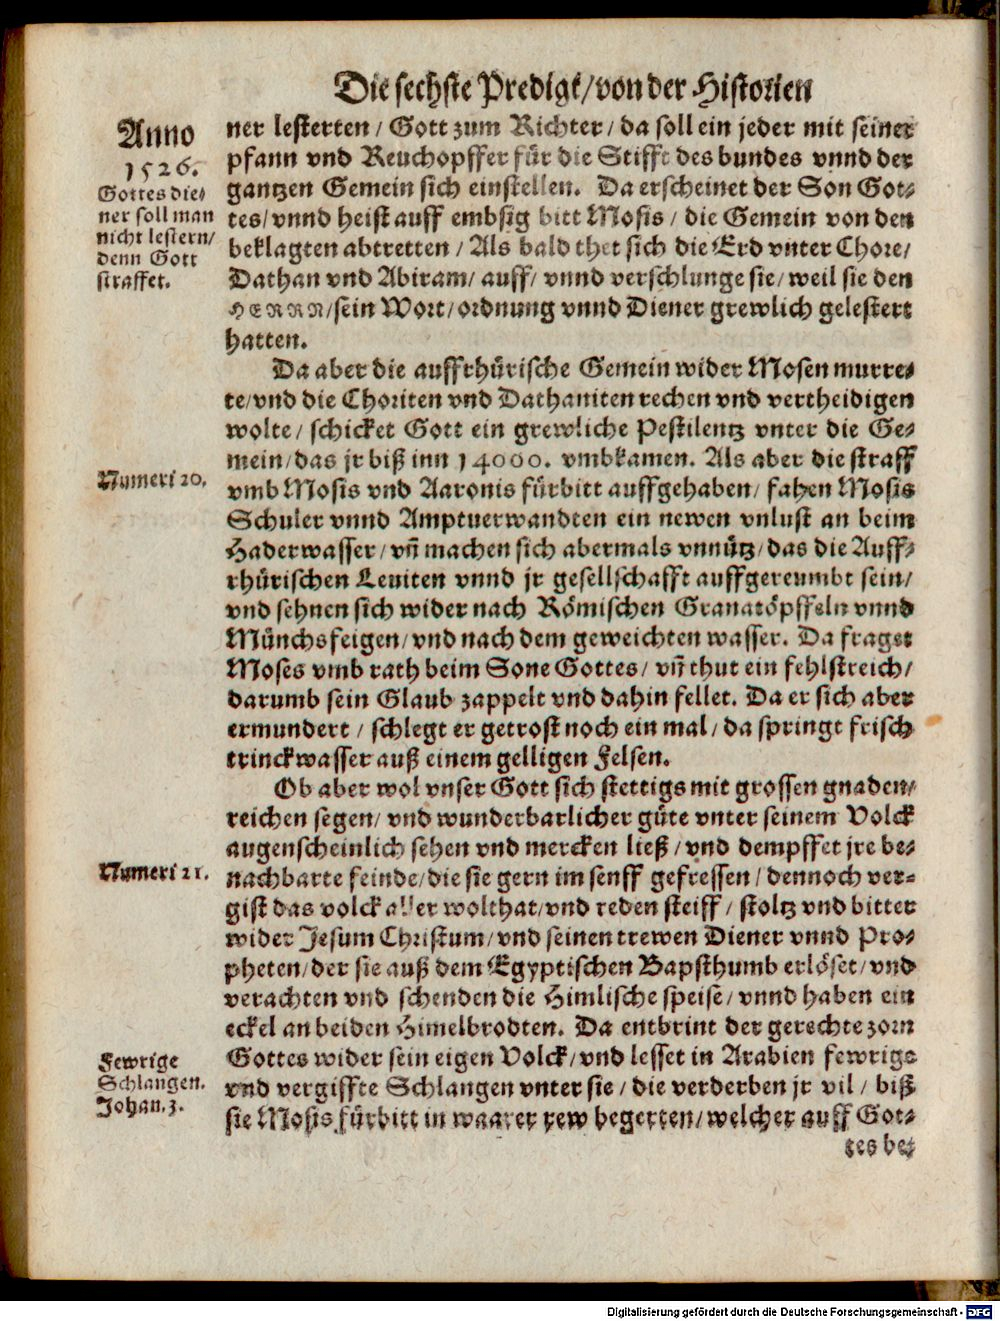 Die sechste Predigt/von der Historien
Anno
1526.
Gottes die⸗
ner soll man
nicht lestern/
denn Gott
straffet.
ner lesterten/ Gott zum Richter/ da soll ein jeder mit seiner
pfann vnd Reuchopffer für die Stifft des bundes vnnd der
gantzen Gemein sich einstellen. Da erscheinet der Son Got⸗
tes/ vnnd heist auff embsig bitt Mosis/ die Gemein von den
beklagten abtretten/ Als bald thet sich die Erd vnter Chore/
Dathan vnd Abiram/ auff/ vnnd verschlunge sie/ weil sie den
HERRN/sein Wort/ordnung vnnd Diener grewlich gelestert
hatten.
Da aber die auffrhürische Gemein wider Mosen murre⸗
te/vnd die Choriten vnd Dathaniten rechen vnd vertheidigen
wolte/ schicket Gott ein grewliche Pestilentz vnter die Ge⸗
mein/das jr biß inn 14000. vmbkamen. Als aber die straff
Numeri 20.
vmb Mosis vnd Aaronis fürbitt auffgehaben/ fahen Mosis
Schuler vnnd Amptuerwandten ein newen vnlust an beim
Haderwasser/vñ machen sich abermals vnnütz/das die Auff⸗
rhürischen Leuiten vnnd jr gesellschafft auffgereumbt sein/
vnd sehnen sich wider nach Römischen Granatöpffeln vnnd
Münchsfeigen/vnd nach dem geweichten wasser. Da fraget
Moses vmb rath beim Sone Gottes/ vñ thut ein fehlstreich/
darumb sein Glaub zappelt vnd dahin fellet. Da er sich aber
ermundert/ schlegt er getrost noch ein mal/ da springt frisch
trinckwasser auß einem gelligen Felsen.
Ob aber wol vnser Gott sich stettigs mit grossen gnaden⸗
reichen segen/ vnd wunderbarlicher güte vnter seinem Volck
augenscheinlich sehen vnd mercken ließ/vnd dempffet jre be⸗
Numeri 21.
nachbarte feinde/die sie gern im senff gefressen/ dennoch ver⸗
gist das volck aller wolthat/vnd reden steiff/ stoltz vnd bitter
wider Jesum Christum/vnd seinen trewen Diener vnnd Pro⸗
pheten/der sie auß dem Egyptischen Bapsthumb erlöset/vnd
verachten vnd schenden die Himlische speise/ vnnd haben ein
eckel an beiden Himelbrodten. Da entbrint der gerechte zorn
Fewrige
Schlangen.
Johan. 3.
Gottes wider sein eigen Volck/vnd lesset in Arabien fewrige
vnd vergiffte Schlangen vnter sie/ die verderben jr vil/ biß
sie Mosis fürbitt in waarer rew begerten/welcher auff Got⸗
tes be⸗
Digitalisierung gefördert durch die Deutsche Forschungsgemeinschaft - DFG